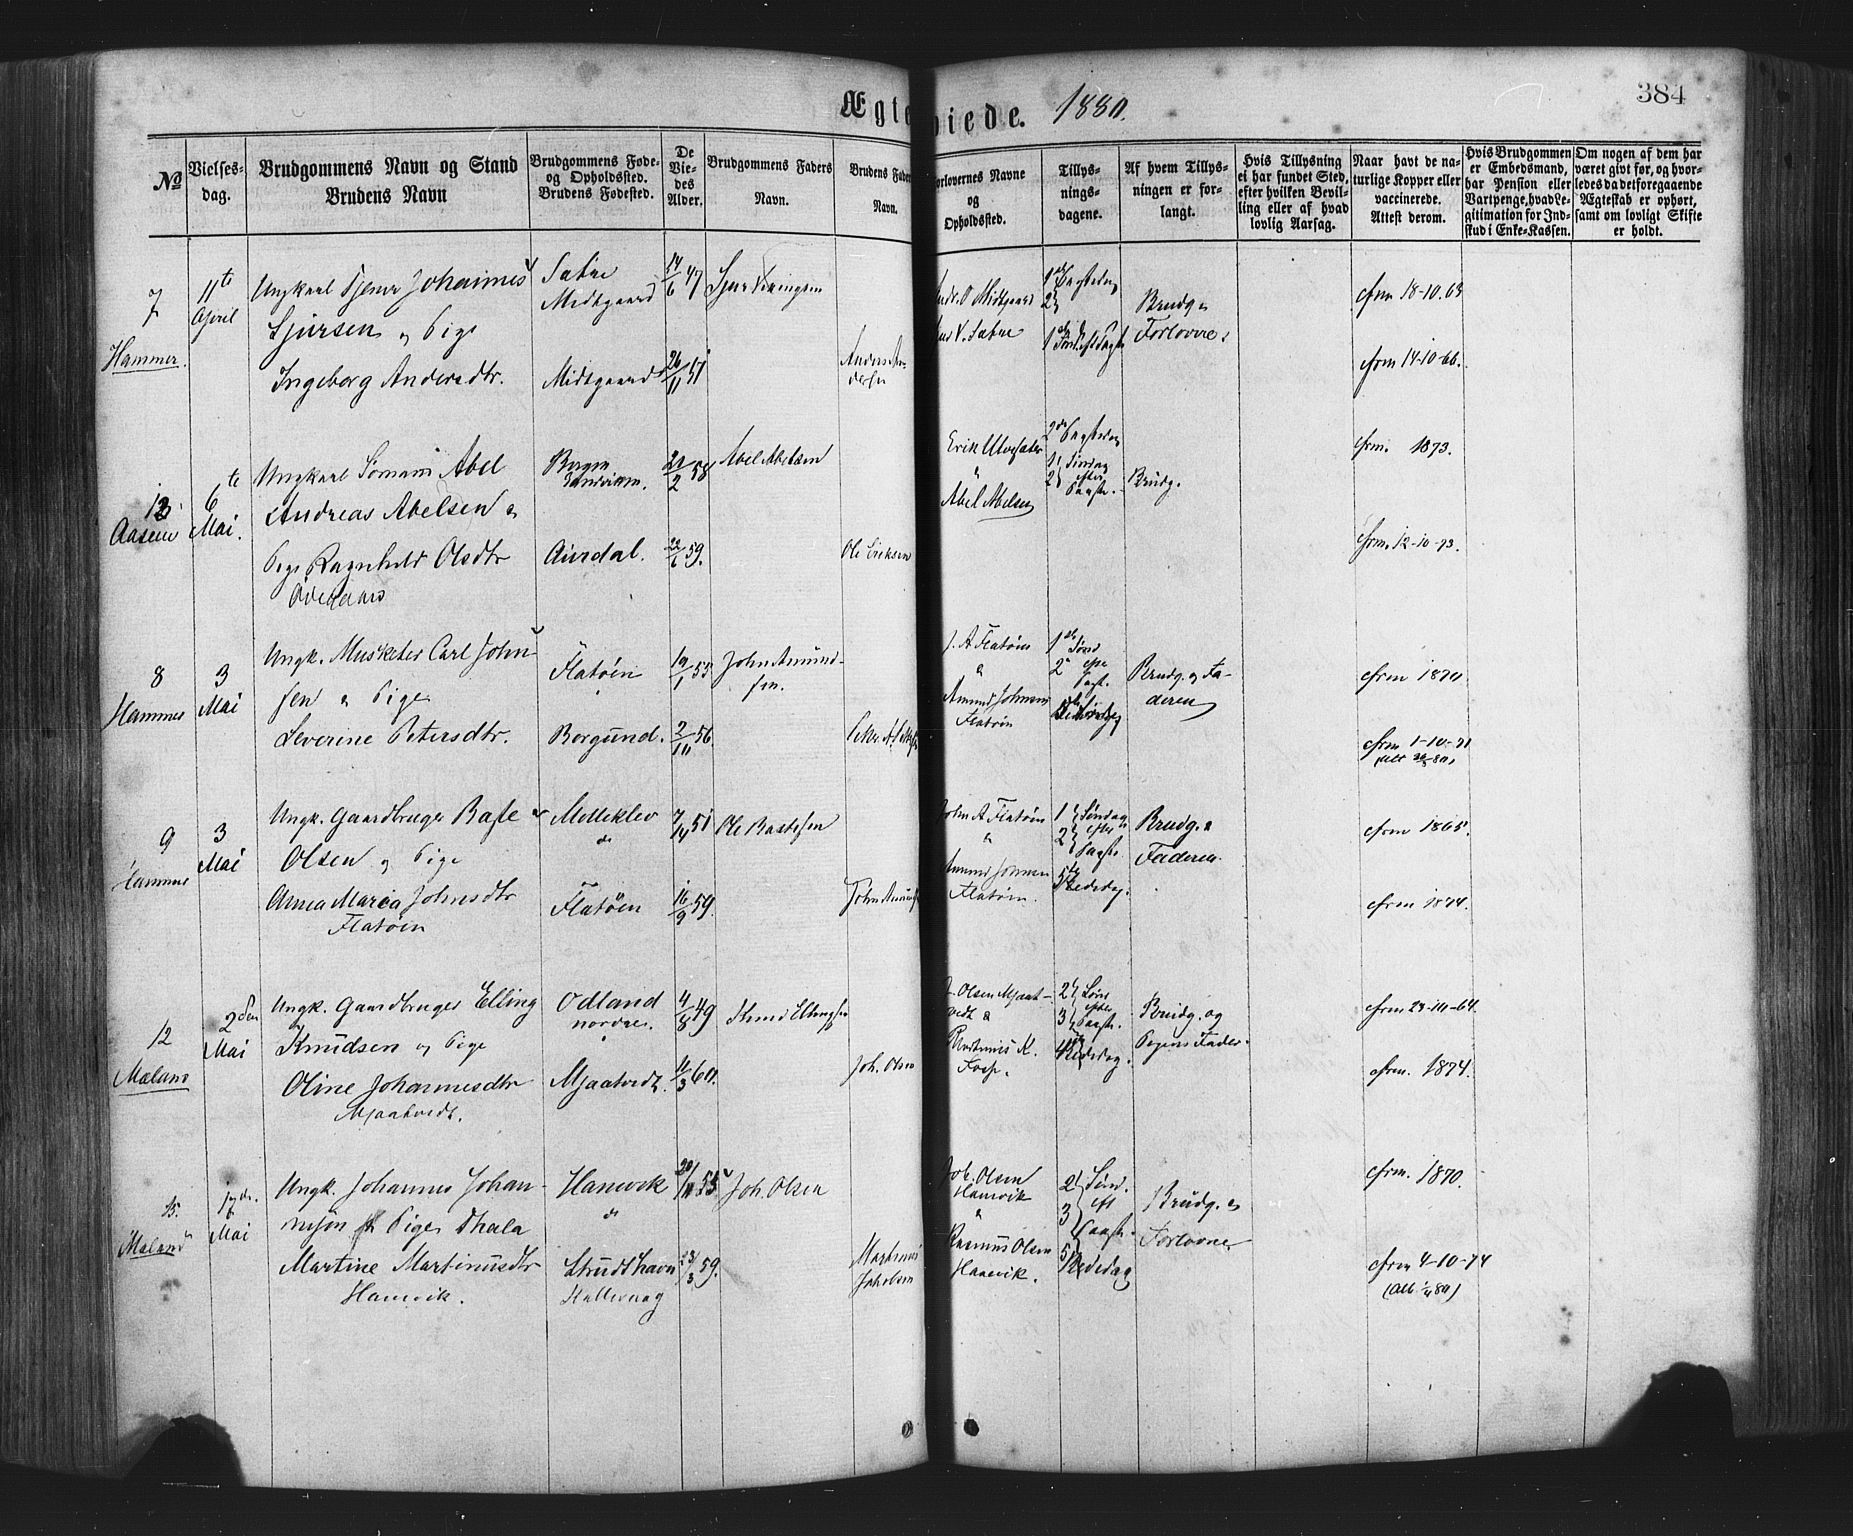 Ægte viede. 1880.
384
No
Vielses-
dag.
Brudgommens Navn og Stand
Brudens Navn
Brudgommens Føde-
og Opholdssted.
Brudens Fødested.
De
Vie-
des
Alder.
Brudgommens Faders
Navn.
Brudens Fader
Navn.
Forlovernes Navne
og
Opholdssted.
Tillys-
nings-
dagene.
Af hvem Tillys-
ningen er for-
langt.
Hvis Tillysning
ei har fundet Sted,
efter hvilken Bevil-
ling eller af hvad
lovlig Aarsag.
Naar havt de na-
turlige Kopper eller
vaccinerede.
Attest derom.
Hvis Brudgommen
er Embedsmand,
har Pension eller
Vartpenge, hvad Le-
gitimation for Ind-
skud i Enke-Kassen.
Om nogen af dem har
været givt før, og hvor-
ledes da det foregaaende
Ægteskab er ophørt,
samt om lovligt Skifte
er holdt.
7
Hammer.
11te
April
Ungkarl Tjener Johannes
Sjursen og Pige
Ingeborg Andersdtr.
Sætre
Midtgaard
Midtgaard
14/6 47
26/11 51
Sjur Vikingsen
Anders An-
dersen
Midtgaard
Sætre
Brudg. og
Forlovere.
Cfrm 18-10.63
Cfrm 14-10-66.
Aasene
6te
Mai.
Ungkarl Sømand Abel
Andreas Abelsen og
Pige Ragnhild Olsdtr
Bergen
Sandviken.
Aurdal.
58
22/6 59.
Abel Abelsen
Ole Eriksen
Erik
Abel Abelsen
2den Paaskedag
1. Søndag
2. efter
Paaske.
Brudg.
Cfrm. 1873.
Cfrm. 12-10-73.
8
Hammer
3
Mai
Ungk. Musketer Carl John-
sen og Pige
Severine Petersdtr.
Flatøen
Borgund.
19/1 55
2/11 56.
John Amund-
sen.
J. A. Flatøen
&
Amund Johnsen
Flatøen
1ste Sønd
2 efter
Paaske.
Brudg. og Fa-
deren
Cfrm 1870
Cfrm 1-10-71
9
Hammer
3
Mai
Ungk. Gaardbruger Baste
Olsen og Pige
Anna Maria Johnsdtr
Flatøen
Molleklev
do
Flatøen
51
16/9 59.
Ole Bastesen
John Amunds
John A Flatøen
&
Amund Johnsen
Flatøen.
1 Søndag
2 efter
Paaske.
5te Bededag.
Brudg. &
Faderen.
Cfrm 1865.
Cfrm 1874.
12
Mæland
2den
Mai
Ungk. Gaardbruger Elling
Knudsen og Pige
Oline Johannesdtr
Mjaatvedt.
Odland
nordre.
Mjaatvedt.
4/8 49
11/3 60.
Knud Ellingsen
Joh. Olsen
J. Olsen Mjaat-
vedt &
Rasmus K.
Fosse.
2 Sønd
3 efter
Paaske.
4 Bededag.
Brudg. og
Pigens Fader.
Cfrm 23-10-64.
Cfrm. 1874.
15.
Mæland
17de.
Mai
Ungk. Johannes Johan-
nesen og Pige Thala
Martine Martinusdtr
Hanevik.
Hanevik
do
Strudshavn
Kallevaag
20/11 55
59.
Joh. Olsen
Martinus
Jakobsen
Joh. Olsen
Hanevik
&
Rasmus Olsen
Hanevik.
2 Sønd.
3 eft
Paaske.
5 Bededag
Brudg. og
Forlovere
Cfrm. 1870.
Cfrm 4-10-74